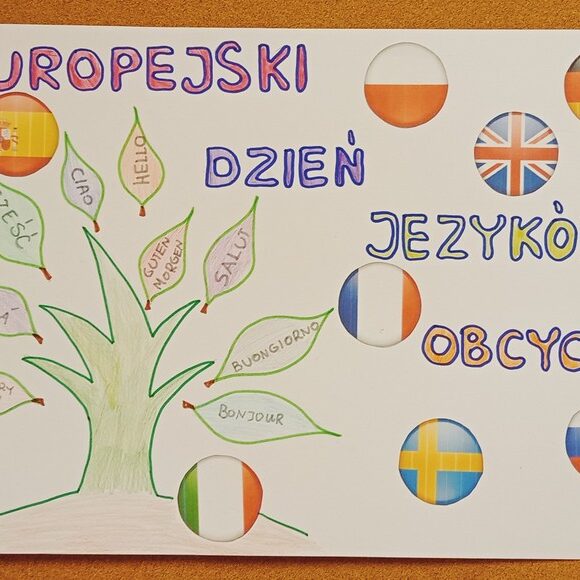 UROPEJSKI
DZIEŃ
JEZYKÓ
OBCYC
HELLO
CIAO
EŚĆ
GUTEN
MORGEN
SALUT
BUONGIORNO
BONJOUR
RY